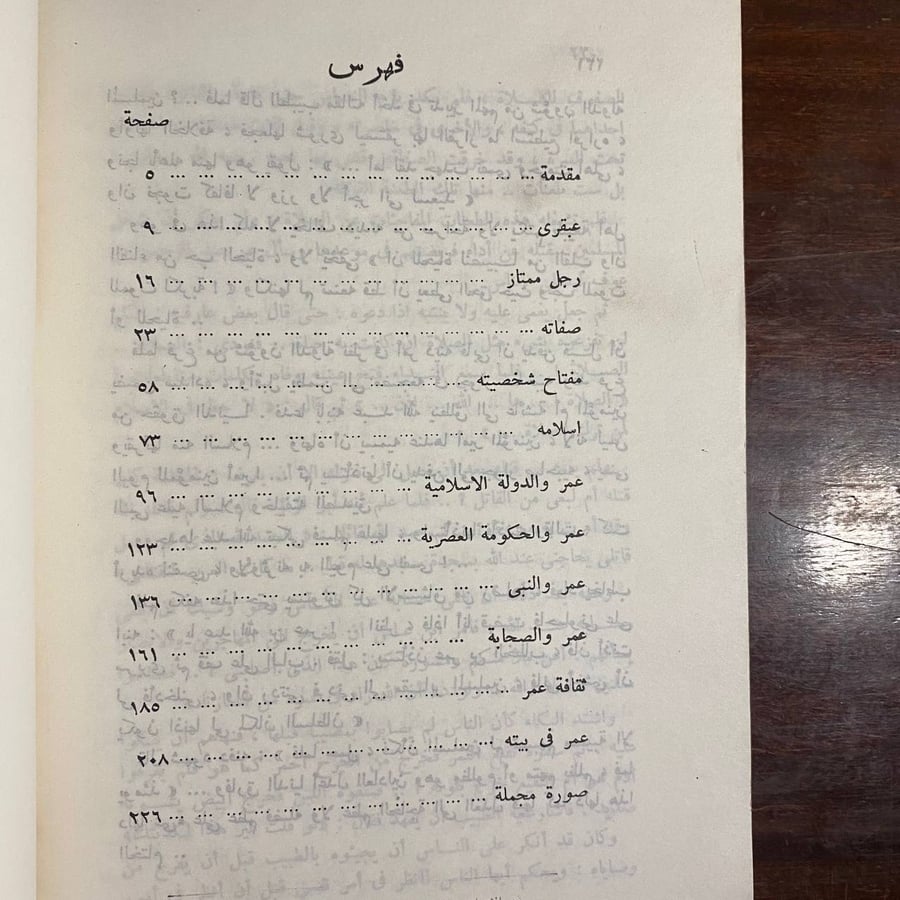 فهرس
صفحة
مقدمة ... ٥
عبقرى ... ٩
رجل ممتاز ... ١٦
صفاته ... ٢٣
مفتاح شخصيته ... ٥٨
اسلامه ... ٧٣
عمر والدولة الاسلامية ... ٩٦
عمر والحكومة العصرية ... ١٢٣
عمر والنبى ... ١٣٦
عمر والصحابة ... ١٦١
ثقافة عمر ... ١٨٥
عمر فى بيته ... ٢٠٨
صورة مجملة ... ٢٢٦